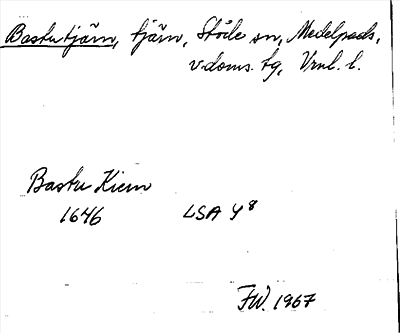 Bastutjärn, tjärn, Stöde sn, Medelpads,
v. doms. tg, Vrnl. l.
Bastu Kiern
1646 LSA Y8
FW. 1967